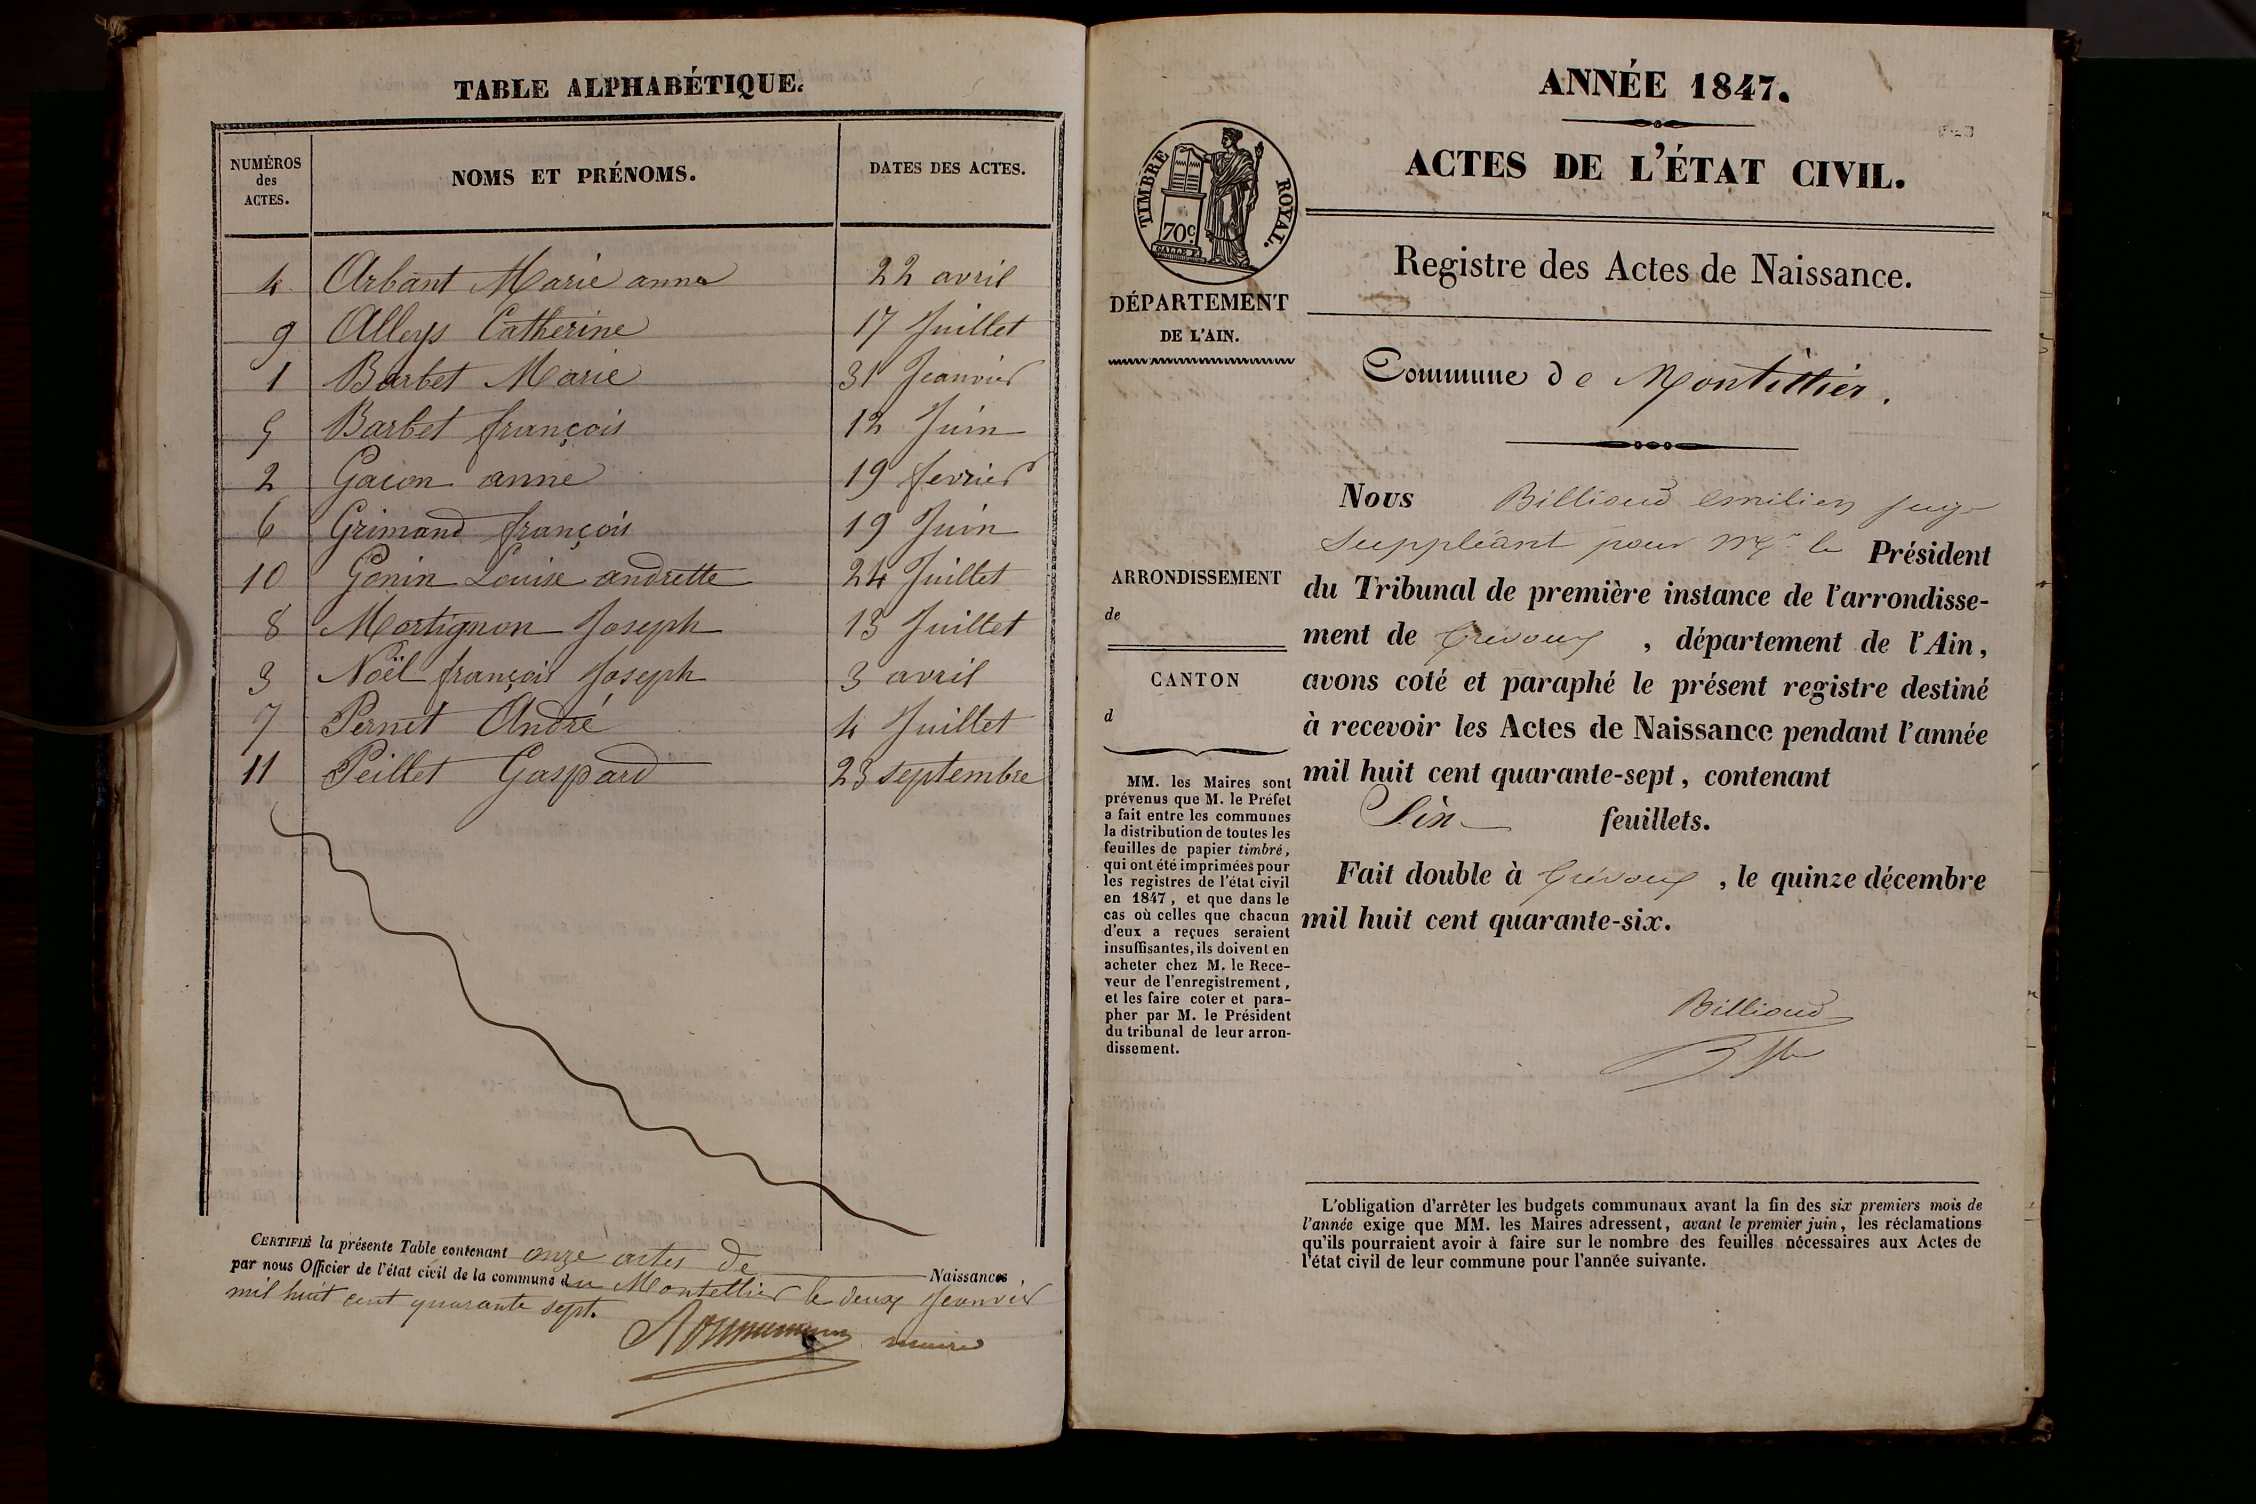 TABLE ALPHABÉTIQUE.
NUMÉROS
des
ACTES.
NOMS ET PRÉNOMS.
DATES DES ACTES.
4 Arbant Marie anne 22 avril
9 Alleys Catherine 17 Juillet
1 Barbet Marie 31 Jeanvier
5 Barbet françois 12 Juin
2 Gacon anne 19 fevrier
6 Grimand françois 19 Juin
10 Gonin Louise andrette 24 Juillet
8 Mortignon Joseph 13 Juillet
3 Noël françois Joseph 3 avril
7 Pernet André 4 Juillet
11 Peillet Gaspard 23 septembre
CERTIFIÉ la présente Table contenant onze actes de Naissances,
par nous Officier de l'état civil de la commune de Montellier le deux Jeanvier
mil huit cent quarante sept.
maire
ANNÉE 1847.
ACTES DE L'ÉTAT CIVIL.
TIMBRE ROYAL.
70c
Registre des Actes de Naissance.
DÉPARTEMENT
DE L'AIN.
Commune de Montellier.
ARRONDISSEMENT
de
CANTON
d
MM. les Maires sont
prévenus que M. le Préfet
a fait entre les communes
la distribution de toutes les
feuilles de papier timbré,
qui ont été imprimées pour
les registres de l'état civil
en 1847, et que dans le
cas où celles que chacun
d'eux a reçues seraient
insuffisantes, ils doivent en
acheter chez M. le Rece-
veur de l'enregistrement,
et les faire coter et para-
pher par M. le Président
du tribunal de leur arron-
dissement.
Nous Billioud emilien juge
Suppléant pour Mr le Président
du Tribunal de première instance de l'arrondisse-
ment de Trévoux, département de l'Ain,
avons coté et paraphé le présent registre destiné
à recevoir les Actes de Naissance pendant l'année
mil huit cent quarante-sept, contenant
Six feuillets.
Fait double à Trévoux, le quinze décembre
mil huit cent quarante-six.
Billioud
L'obligation d'arrêter les budgets communaux avant la fin des six premiers mois de
l'année exige que MM. les Maires adressent, avant le premier juin, les réclamations
qu'ils pourraient avoir à faire sur le nombre des feuilles nécessaires aux Actes de
l'état civil de leur commune pour l'année suivante.